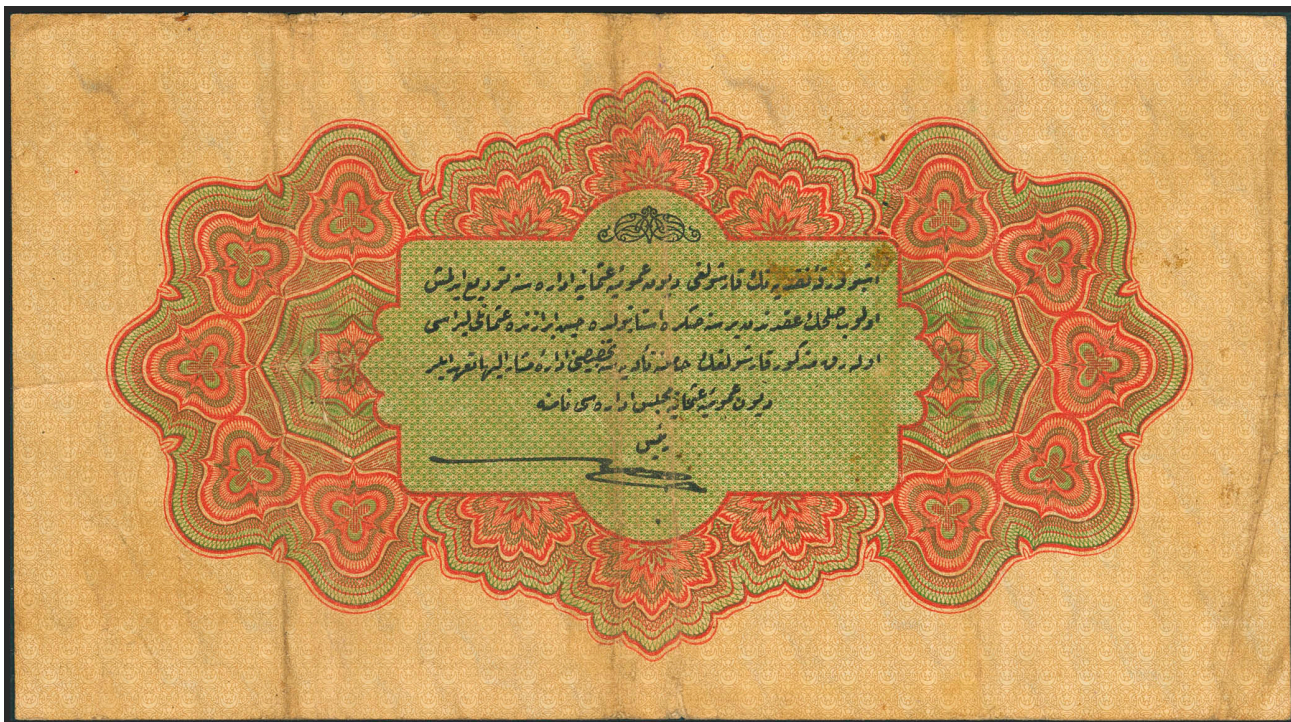 اشبو ورقهٔ نقديه نك قارشولغى ديون عموميهٔ عثمانيه اداره سنه توديع ايدلمش
اولوب صلحك عقدندن بر سنه صكره استانبولده عثمانلى ليراسى
اوله رق مذكور قارشولغك تأديه تخصيصى ادارهٔ مشار اليها تعهد ايلر
ديون عموميهٔ عثمانيه مجلس اداره سى نامنه
رئيس